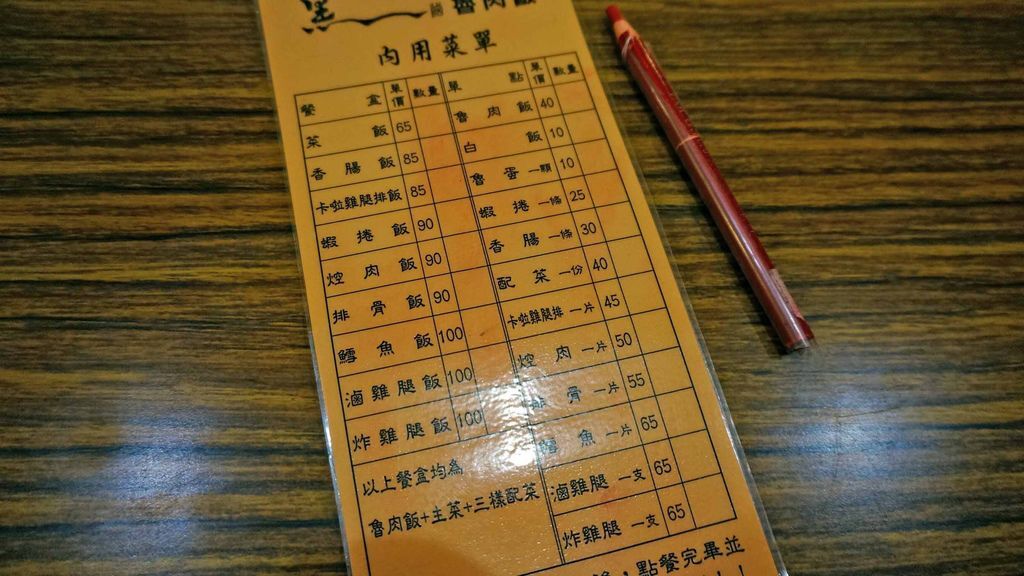 魯肉飯
內用菜單
餐盒 單價 數量 單點 單價 數量
菜飯 65 魯肉飯 40
香腸飯 85 白飯 10
卡啦雞腿排飯 85 魯蛋一顆 10
蝦捲飯 90 蝦捲一條 25
焢肉飯 90 香腸一條 30
排骨飯 90 配菜一份 40
鱈魚飯 100 卡啦雞腿排一片 45
滷雞腿飯 100 焢肉一片 50
炸雞腿飯 100 排骨一片 55
以上餐盒均為 鱈魚一片 65
魯肉飯+主菜+三樣配菜 滷雞腿一支 65
炸雞腿一支 65
，點餐完畢並